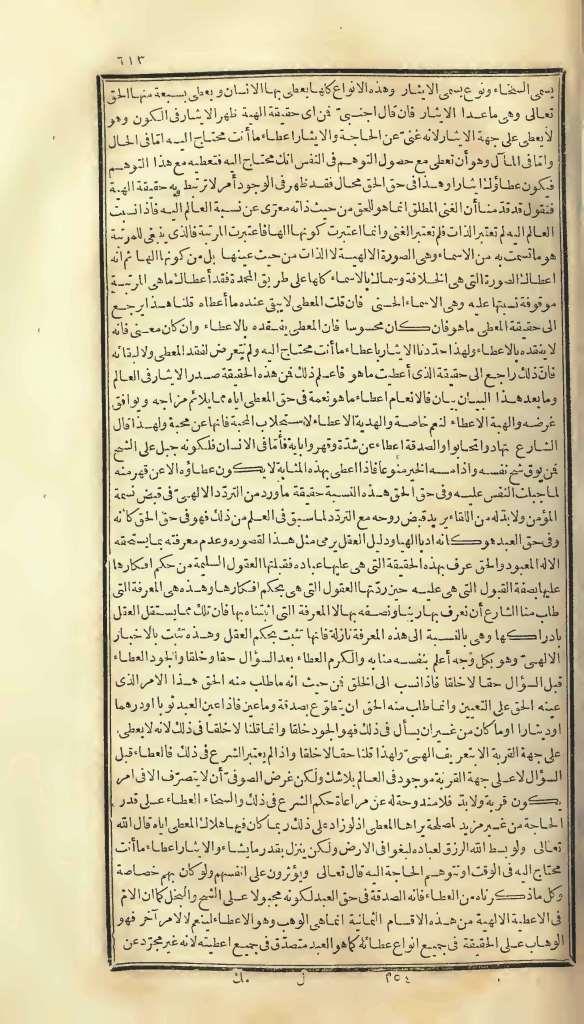 ٦١٣
يسمى السخاء ونوع يسمى الايثار وهذه الانواع كلها يعطى بها الانسان ويعطى بسبعة منها الحق
تعالى وهى ماعدا الايثار فان قال اجنبى فن اى حقيقة الهية ظهر الايثار فى الكون وهو
لا يعطى على جهة الايثار لانه غنى عن الحاجة والايثار اعطاء ما أنت محتاج اليه اما فى الحال
واما فى المآل وهو أن تعطى مع حصول التوهم فى النفس انك محتاج اليه فتعطيه مع هذا التوهم
فيكون عطاؤك ايثارا وهذا فى حق الحق محال فقد ظهر فى الوجود أمر لا ترتبط به حقيقة الهية
فنقول قد قدمنا أن الغنى المطلق انما هو للحق من حيث ذاته معرى عن نسبة العالم اليه فاذا نسبت
العالم اليه لم تعتبر الذات فلم تعتبر الغنى وانما اعتبرت كونها الها فاعتبرت المرتبة فالذى ينبغى للمرتبة
هو ما تسمت به من الاسماء وهى الصورة الالهية لا الذات من حيث عينها بل من كونها الها ثم انه
اعطاك الصورة التى هى الخلافة وسماك بالاسماء كلها على طريق المحمدة فقد أعطاك ما هى المرتبة
موقوفة نسبتها عليه وهى الاسماء الحسنى فان قلت المعطى لا يبقى عنده ما أعطاه قلنا هذا يرجع
الى حقيقة المعطى ما هو فان كان محسوسا فان المعطى يفقده بالاعطاء وان كان معنى فانه
لا يفقده بالاعطاء ولهذا حددنا الايثار باعطاء ما أنت محتاج اليه ولم نتعرض لفقد المعطى ولا لبقائه
فان ذلك راجع الى حقيقة الذى أعطيت ما هو فاعلم ذلك فن هذه الحقيقة صدر الايثار فى العالم
وما بعد هذا البيان بيان فالانعام اعطاء ما هو نعمة فى حق المعطى اياه مما يلائم مزاجه ويوافق
غرضه والهبة الاعطاء لينعم خاصة والهدية الاعطاء لاستجلاب المحبة فانها عن محبة ولهذا قال
الشارع تهادوا تحابوا والصدقة اعطاء عن شدة وقهر واباية فأما فى الانسان فلكونه جبل على الشح
فمن يوق شح نفسه واذا مسه الخير منوعا فاذا اعطى بهذه المثابة لا يكون عطاؤه الا عن قهر منه
لما جبلت النفس عليه وفى حق الحق هذه النسبة حقيقة ما ورد من التردد الالهى فى قبض نسمة
المؤمن ولا بد له من اللقاء يريد قبض روحه مع التردد لما سبق فى العلم من ذلك فهو فى حق الحق كأنه
وفى حق العبد هو لا كانه ادبا الهيا ودليل العقل يرمى مثل هذا لقصوره وعدم معرفته بما يستحقه
الاله المعبود والحق عرف بهذه الحقيقة التى هى عليها عباده فقبلتها العقول السليمة من حكم افكارها
عليها بصفة القبول التى هى عليه حين ردتها العقول التى هى بحكم افكارها وهذه هى المعرفة التى
طلب منا الشارع أن نعرف بها ربنا ونصفه بها لا المعرفة التى اثبتناه بها فان تلك مما يستقل العقل
بادراكها وهى بالنسبة الى هذه المعرفة نازلة فانها تثبت بحكم العقل وهذه تثبت بالاخبار
الالهى وهو بكل وجه أعلم بنفسه منا به والكرم العطاء بعد السؤال حقا وخلقا والجود العطاء
قبل السؤال حقا لا خلقا فاذا نسب الى الخلق فن حيث انه ما طلب منه الحق هذا الامر الذى
عينه الحق على التعيين وانما طلب منه الحق ان يتطوع بصدقة وما عين فاذا عين العبد ثوبا او درهما
او دينارا او ما كان من غير ان يسأل فى ذلك فهو الجود خلقا وانما قلنا لا خلقا فى ذلك لانه لا يعطى
على جهة القربة الا بتعريف الهى ولهذا قلنا حقا لا خلقا واذا لم يعتبر الشرع فى ذلك فالعطاء قبل
السؤال لا على جهة القربة موجود فى العالم بلا شك ولكن غرض الصوفى أن لا يتصرف الا فى امر
يكون قربة ولا بد فلا مندوحة له عن مراعاة حكم الشرع فى ذلك والسخاء العطاء على قدر
الحاجة من غير مزيد لمصلحة يراها المعطى اذ لو زاد على ذلك ربما كان فيها هلاك المعطى اياه قال الله
تعالى ولو بسط الله الرزق لعباده لبغوا فى الارض ولكن ينزل بقدر ما يشاء والايثار اعطاء ما أنت
محتاج اليه فى الوقت او تتوهم الحاجة اليه قال تعالى ويؤثرون على انفسهم ولو كان بهم خصاصة
وكل ما ذكرناه من العطاء فانه الصدقة فى حق العبد لكونه مجبولا على الشح والبخل كما ان الام
فى الاعطية الالهية من هذه الاقسام الثمانية انما هى الوهب وهو الاعطاء لينعم لا لامر آخر فهو
الوهاب على الحقيقة فى جميع انواع عطائه كما هو العبد متصدق فى جميع اعطيته لانه غير مجرد عن